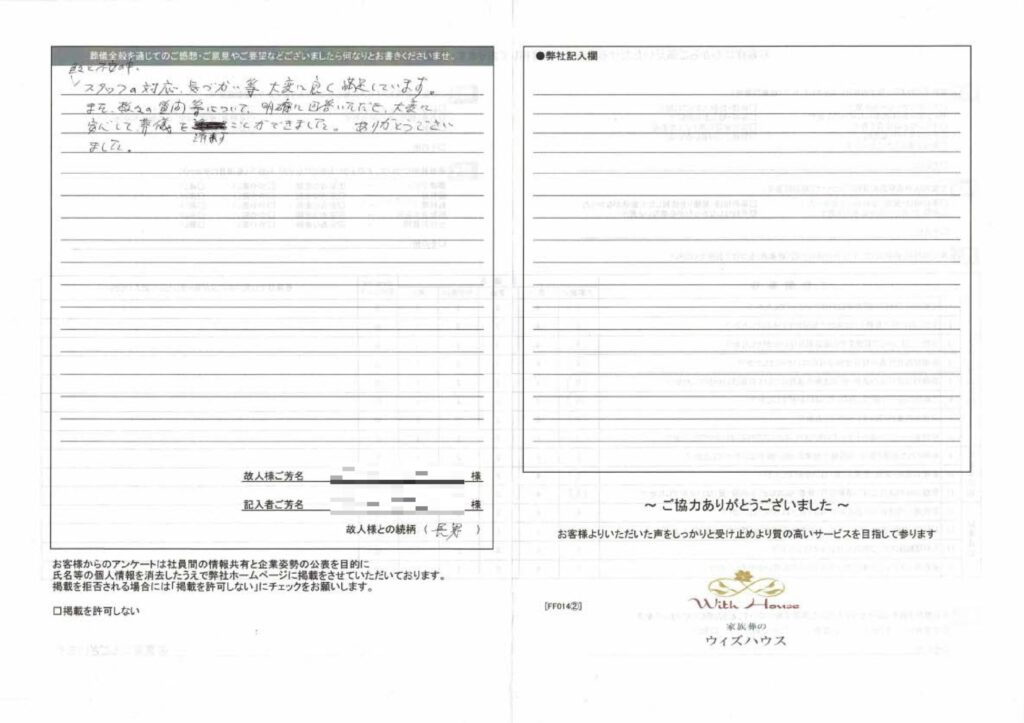 葬儀全般を通じてのご感想・ご意見やご要望などございましたら何なりとお書きくださいませ。
スタッフの対応、気づかい等 大変に良く満足しています。
また、数々の質問等について、明確に回答いただき、大変に
安心して葬儀を ことができました。ありがとうござい
ました。
故人様ご芳名 様
記入者ご芳名 様
故人様との続柄 ( 長男 )
お客様からのアンケートは社員間の情報共有と企業姿勢の公表を目的に
氏名等の個人情報を消去したうえで弊社ホームページに掲載をさせていただいております。
掲載を拒否される場合には「掲載を許可しない」にチェックをお願いします。
□掲載を許可しない
●弊社記入欄
～ ご協力ありがとうございました ～
お客様よりいただいた声をしっかりと受け止めより質の高いサービスを目指して参ります
[FF014②]
With House
家族葬の
ウィズハウス